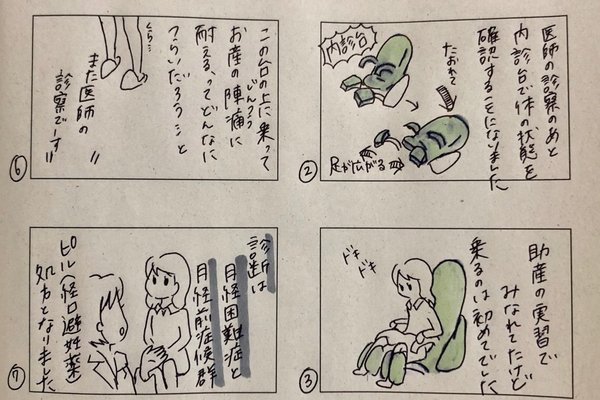 ②
医師の診察のあと
内診台で体の状態を
確認することになりました
内診台
たおれて
足が広がる
③
助産の実習で
みなれてたけど
乗るのは初めてでした
ドキ
ドキ
⑥
この台の上に乗って
お産の陣痛に
じんつう
耐える、ってどんなに
つらいだろう…と
くら…
また医師の
診察でーす"
⑦
診断は
月経困難症と
月経前症候群
ピル(経口避妊薬)
処方となりました